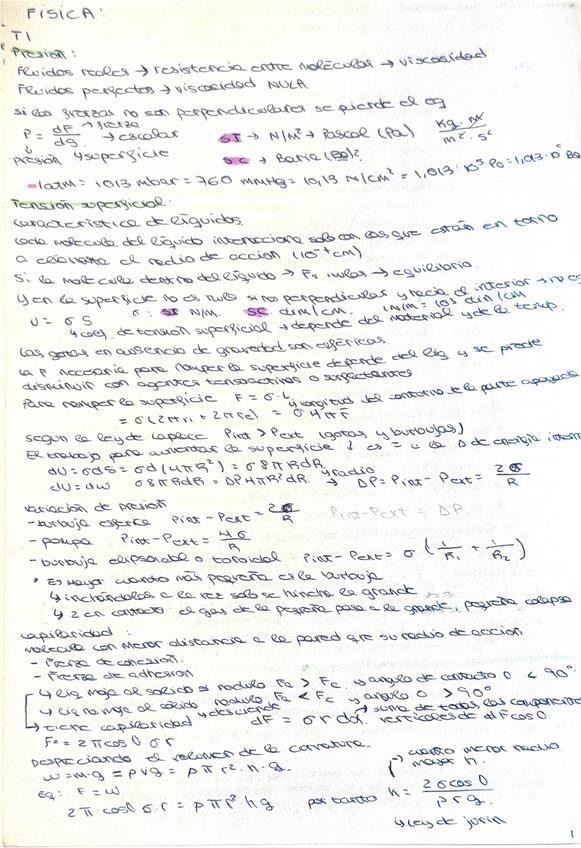 FISICA:
T1
Presión:
Fluidos reales → resistencia entre moléculas → viscosidad
Fluidos perfectos → viscosidad NULA
si las fuerzas no son perpendiculares se pierde el eq
P = dF/dS → fuerza → escalar SI → N/m² → Pascal (Pa) Kg·m/m²·s²
presión superficie SC → Baria
1atm = 1013 mbar = 760 mmHg = 10,13 N/cm² = 1,013·10⁵ Pa = 1,013·10⁶ Ba
Tensión superficial.
característica de líquidos.
cada molecula del líquido interacciona solo con las que están en torno
a ella el radio de accion
si la molecula dentro del líquido → nulas → equilibrio.
y en la superficie no es nula si no perpendicular y hacia el interior → no eq
U = σ S σ: SI N/m. SC din/cm. 1N/m = 10³ din/cm
coef. de tensión superficial → depende del material y de la temp.
Las gotas en ausencia de gravedad son esféricas.
La F necesaria para romper la superficie depende del liq y se puede
disminuir con agentes tensoactivos o surfectantes
Para romper la superficie F = σ·L longitud del contorno de la parte apoyada
= σ(2πr₁ + 2πr₂) = σ4πr̄
según la ley de Laplace Pint > Pext (gotas y burbujas)
El trabajo para aumentar la superficie es = a la Δ de energía interna
dU = σdS = σd(4πR²) = σ8πRdR
dU = dw σ8πRdR = ΔP4πR²dR. radio → ΔP = Pint - Pext = 2σ/R
variación de presión
- burbuja esferica Pint - Pext = 2σ/R Pint - Pext = ΔP.
- pompa Pint - Pext = 4σ/R
- burbuja elipsoidal o toroidal: Pint - Pext = σ (1/R₁ + 1/R₂)
* Es mayor cuanto más pequeña es la burbuja
↳ inchándolas a la vez solo se hincha la grande
↳ 2 en contacto el gas de la pequeña pasa a la grande, pequeña colapsa
capilaridad:
molécula con menor distancia a la pared que su radio de acción
- Fuerza de cohesión.
- Fuerza de adhesión
↳ liq moja al sólido si modulo Fa > Fc y angulo de contacto θ < 90°.
↳ liq no moja al sólido modulo Fa < Fc y angulo θ > 90°
→ tiene capilaridad y desciende dF = σ r dα. suma de todas las componentes verticales de dF cos θ
F = 2πcosθ σ r
Despreciando el volumen de la curvatura.
w = m·g = ρvg = ρπr²·h·g. cuanto menor radio mayor h.
eq: F = w
2π·cosθ σ r = ρπr²hg por tanto h = 2σcosθ/ρrg.
↳ Ley de jurin
1